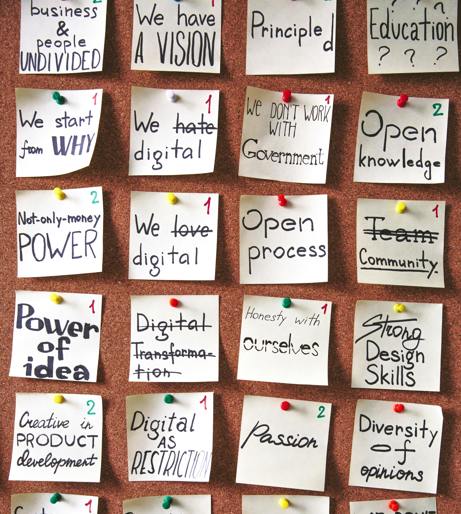 2
business
&
people
UNDIVIDED
1
We have
A VISION
Principled
? ? ?
Education
? ? ?
1
We start
from WHY
1
We hate
digital
1
WE DON'T WORK
WITH
Government
2
Open
knowledge
2
Not-only-money
POWER
1
We love
digital
Open
process
1
Team
Community.
1
Power
of
idea
Digital
Transforma-
tion
1
Honesty with
ourselves
Strong
Design
Skills
2
Creative in
PRODUCT
development
1
Digital
AS
RESTRICTION
2
Passion
Diversity
of
opinions